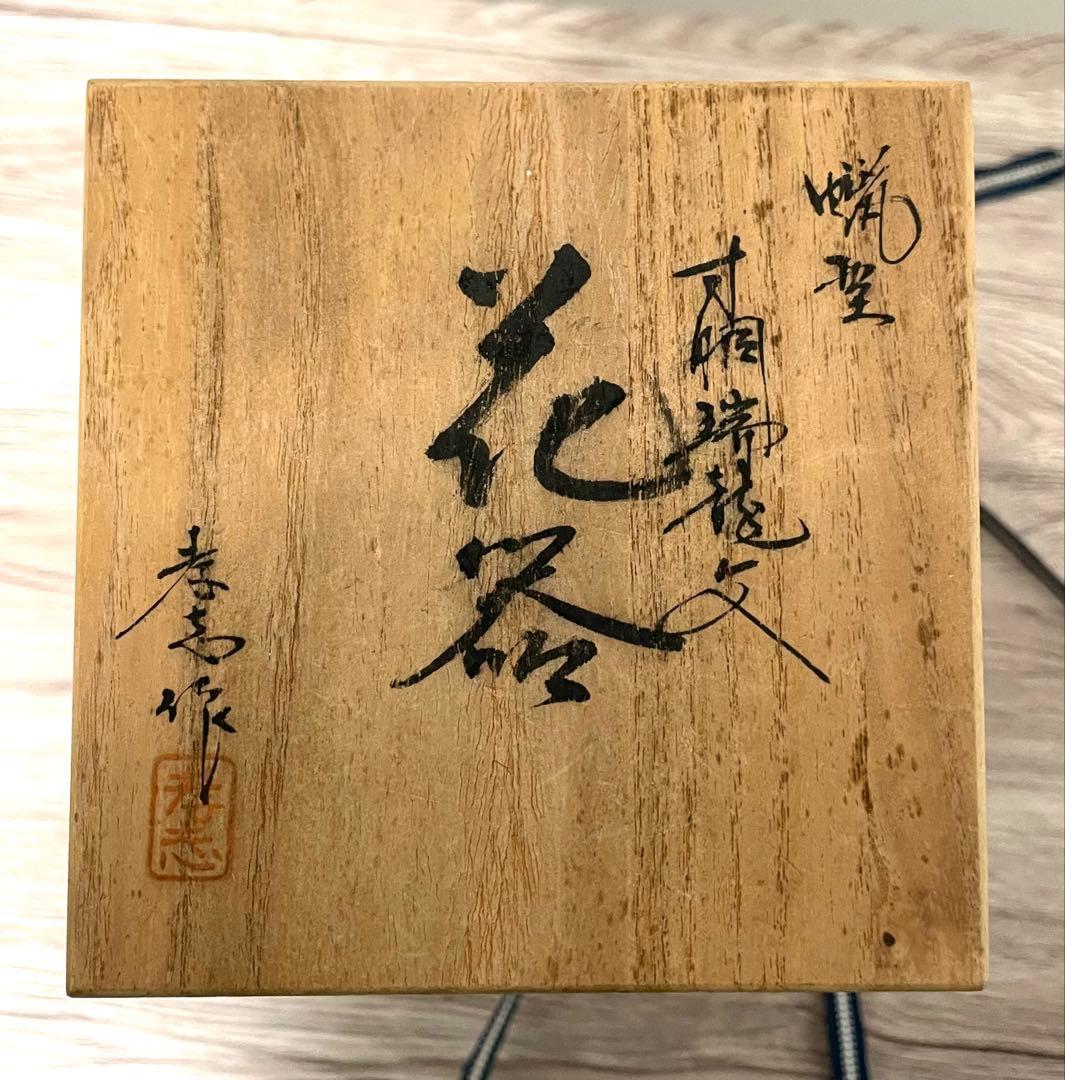 蠟型
寸胴瑞龍文
花器
孝志作
孝志